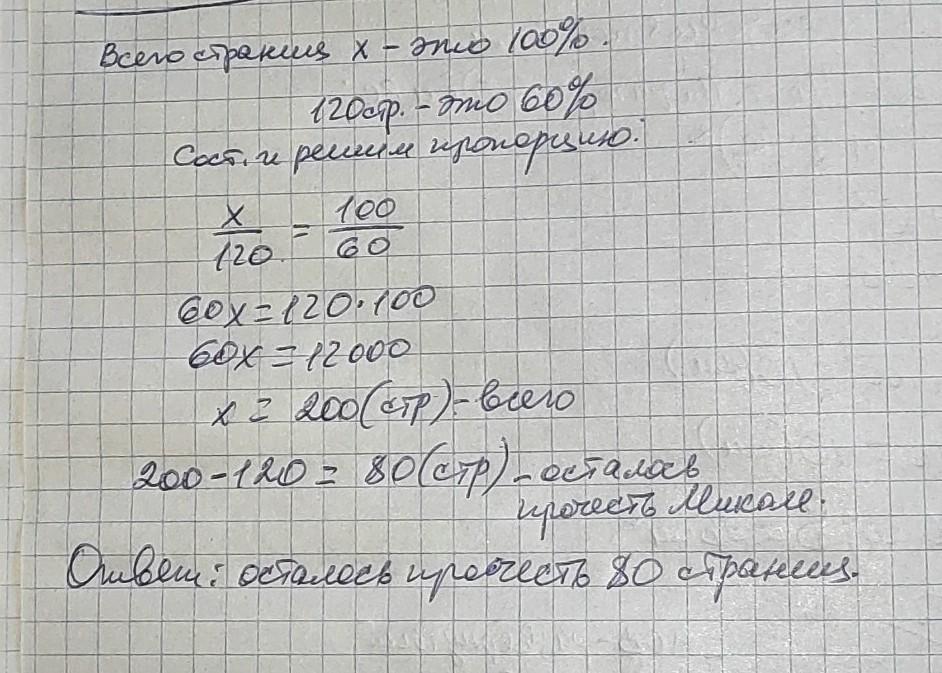 Всего страниц x - это 100%.
120стр. - это 60%
Сост. и решим пропорцию:
x/120 = 100/60
60x = 120·100
60x = 12000
x = 200(стр) - всего
200 - 120 = 80(стр) - осталось
прочесть Миколе.
Ответ: осталось прочесть 80 страниц.